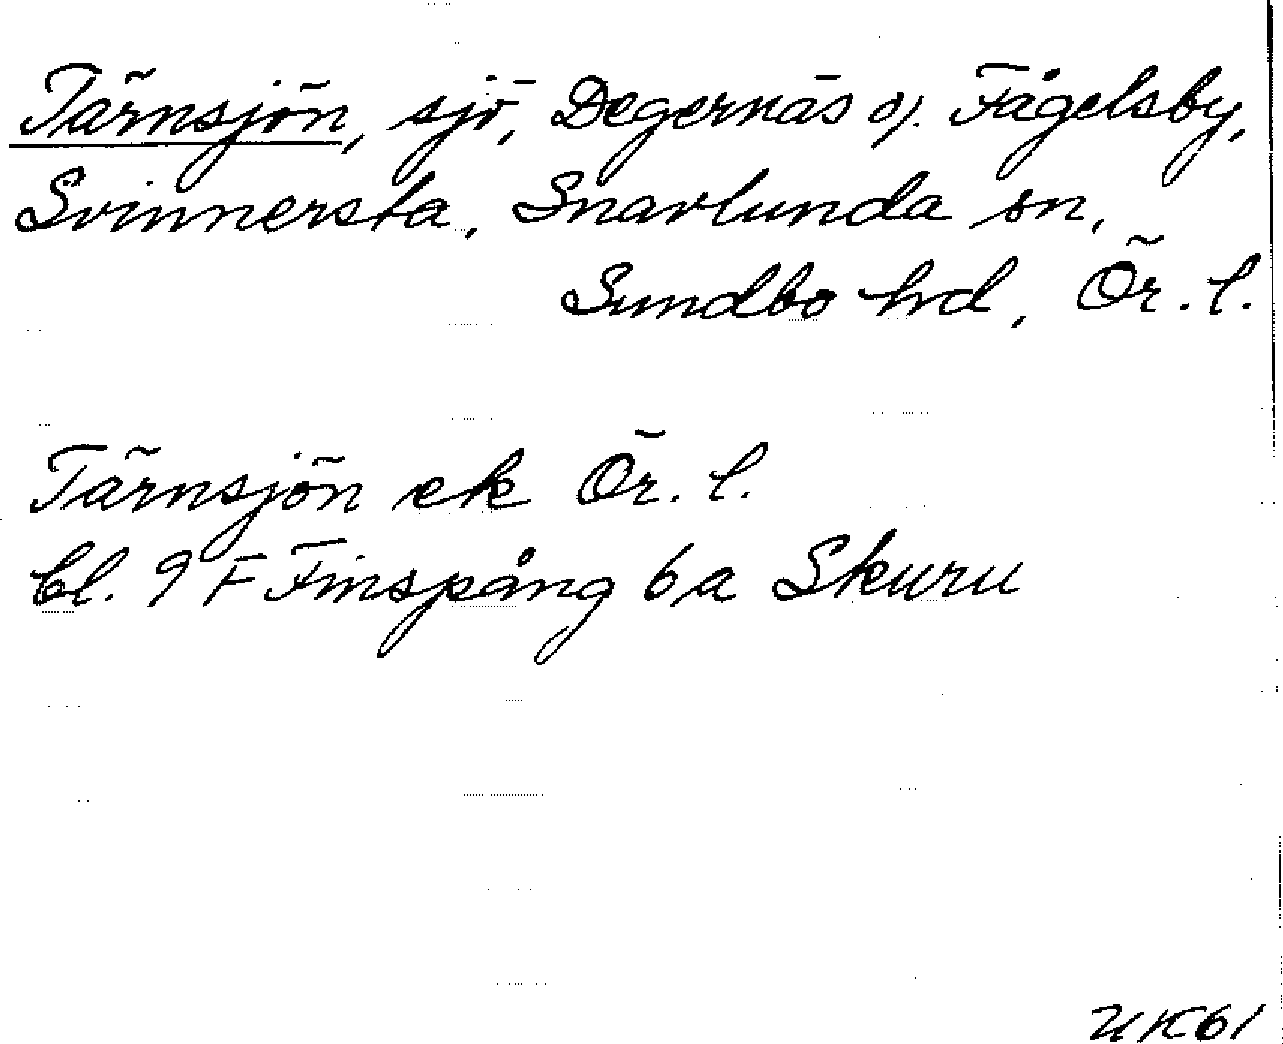 Tärnsjön, sjö, Degernäs o). Fågelsby,
Svinnersta, Snavlunda sn,
Sundbo hd, Ör. l.
Tärnsjön ek Ör. l.
bl. 9 F Finspång 6a Skuru
UK61